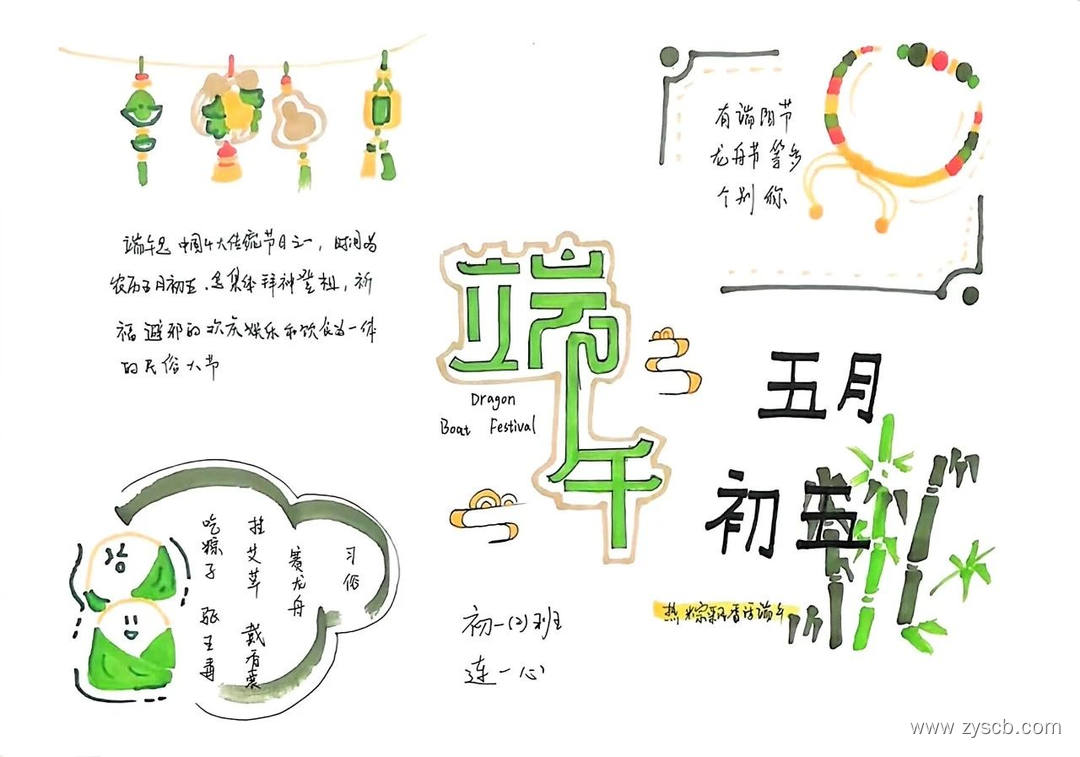 有端阳节
龙舟节等多
个别称
端午是中国4大传统节日之一，时间为
农历五月初五。是集体拜神登祖，祈
福避邪的欢庆娱乐和饮食为一体
的民俗大节
端午
Dragon
Boat Festival
五月
初五
热粽飘香话端午
习俗
赛龙舟
挂艾草 戴香囊
吃粽子 驱五毒
初一(2)班
连一心
www.zyscb.com